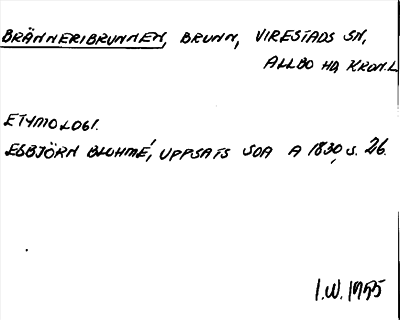 BRÄNNERIBRUNNEN, BRUNN, VIRESTADS SN,
ALLBO HD, KRON.L
ETYMOLOGI.
ESBJÖRN BLOHMÉ, UPPSATS SOA A 1830, S. 26.
I.W. 1955